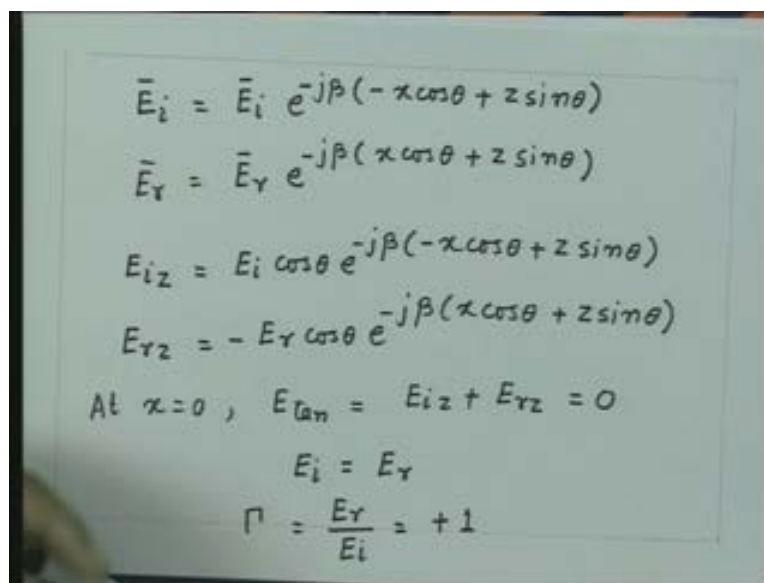 Ēi = Ēi e^-jβ(-xcosθ + zsinθ)
Ēr = Ēr e^-jβ(xcosθ + zsinθ)
Eiz = Ei cosθ e^-jβ(-xcosθ + zsinθ)
Erz = - Er cosθ e^-jβ(xcosθ + zsinθ)
At x=0, Etan = Eiz + Erz = 0
Ei = Er
Γ = Er/Ei = +1